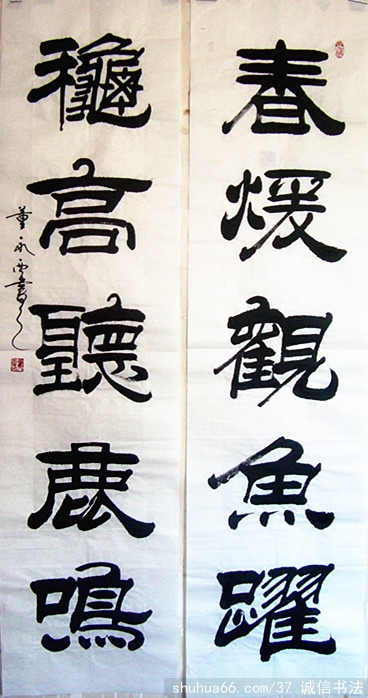 春煖觀魚躍
龝高聽鹿鳴
董永西書
shuhua66.com/37 诚信书法